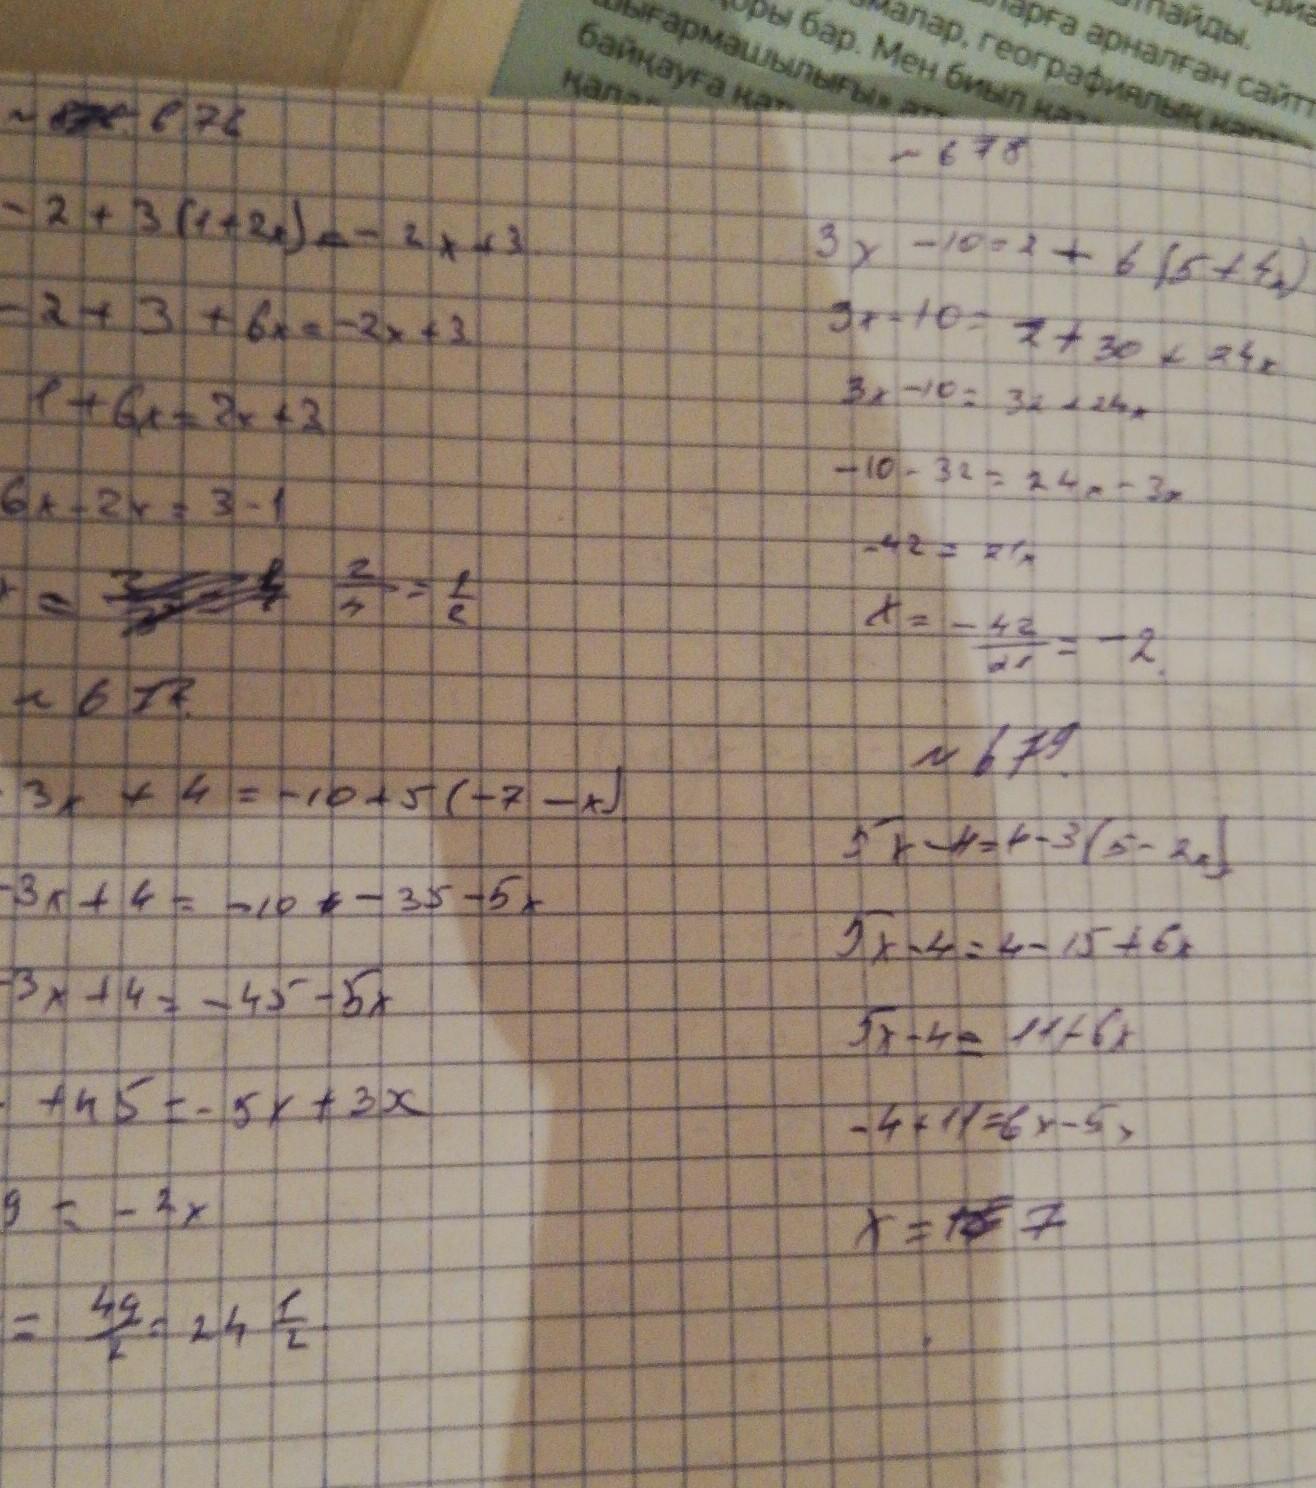 атпайды.
ларға арналған сайт
малар, географиялық
қоры бар. Мен биыл
шығармашылығы»
байқауға
~ 676
- 2 + 3 (1 + 2x) = - 2x + 3
- 2 + 3 + 6x = -2x + 3
1 + 6x = 2x + 3
6x - 2x = 3 - 1
= 2/4 = 1/2
~ 677.
3x + 4 = -10 + 5 (-7 - x)
-3x + 4 = -10 + - 35 - 5x
-3x + 4 = - 45 - 5x
+ 45 = - 5x + 3x
9 = - 2x
= 49/2 = 24 1/2
~ 678
3x - 10 = 2 + 6 (5 + 4x)
3x - 10 = 2 + 30 + 24x
3x - 10 = 32 + 24x
-10 - 32 = 24x - 3x
-42 = 21x
x = - 42/21 = - 2.
~ 679.
5x - 4 = 4 - 3 (5 - 2x)
5x - 4 = 4 - 15 + 6x
5x - 4 = 11 + 6x
- 4 + 11 = 6x - 5x
x = 7